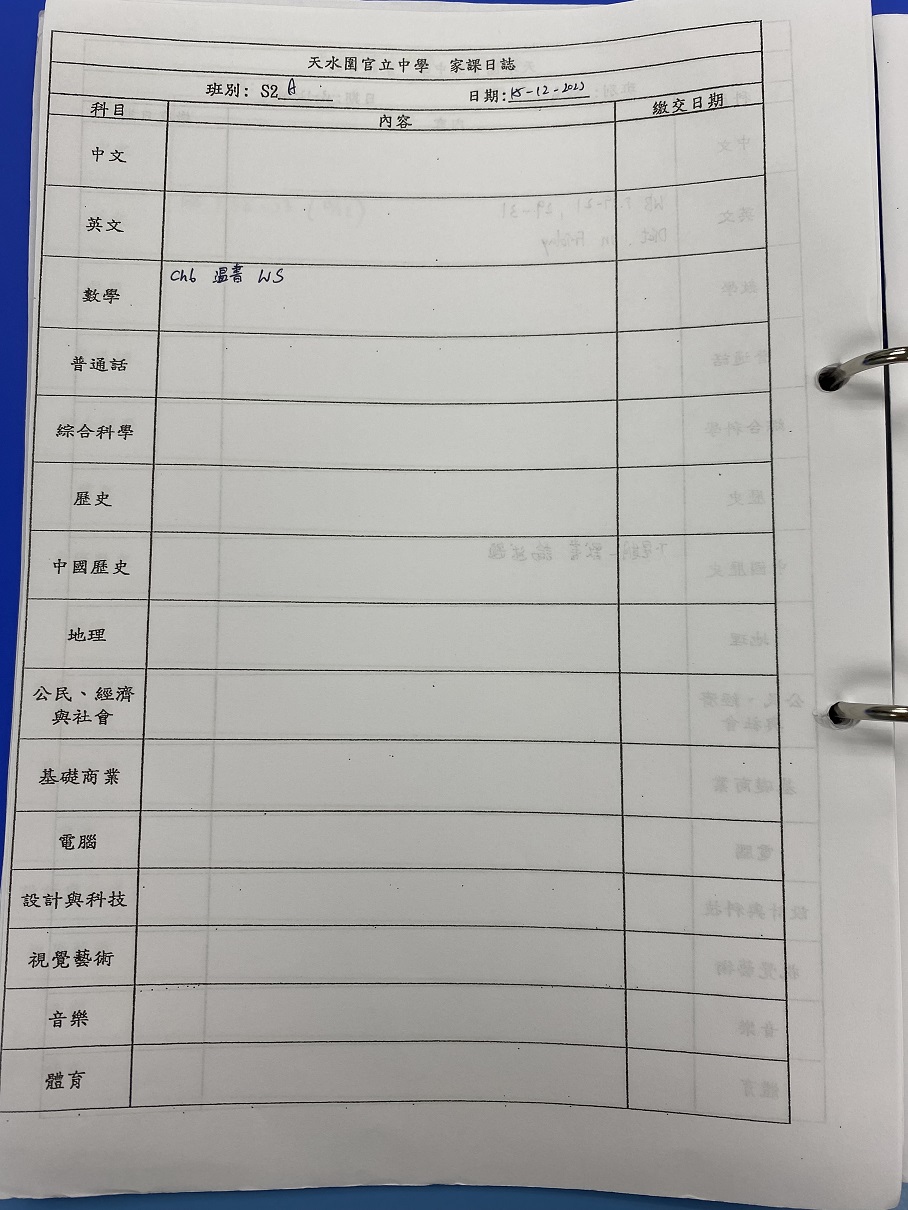 天水圍官立中學 家課日誌
班別: S2 A 日期: 15-12-2023
科目 內容 繳交日期
中文
英文
數學 Ch6 溫書 WS
普通話
綜合科學
歷史
中國歷史
地理
公民、經濟
與社會
基礎商業
電腦
設計與科技
視覺藝術
音樂
體育